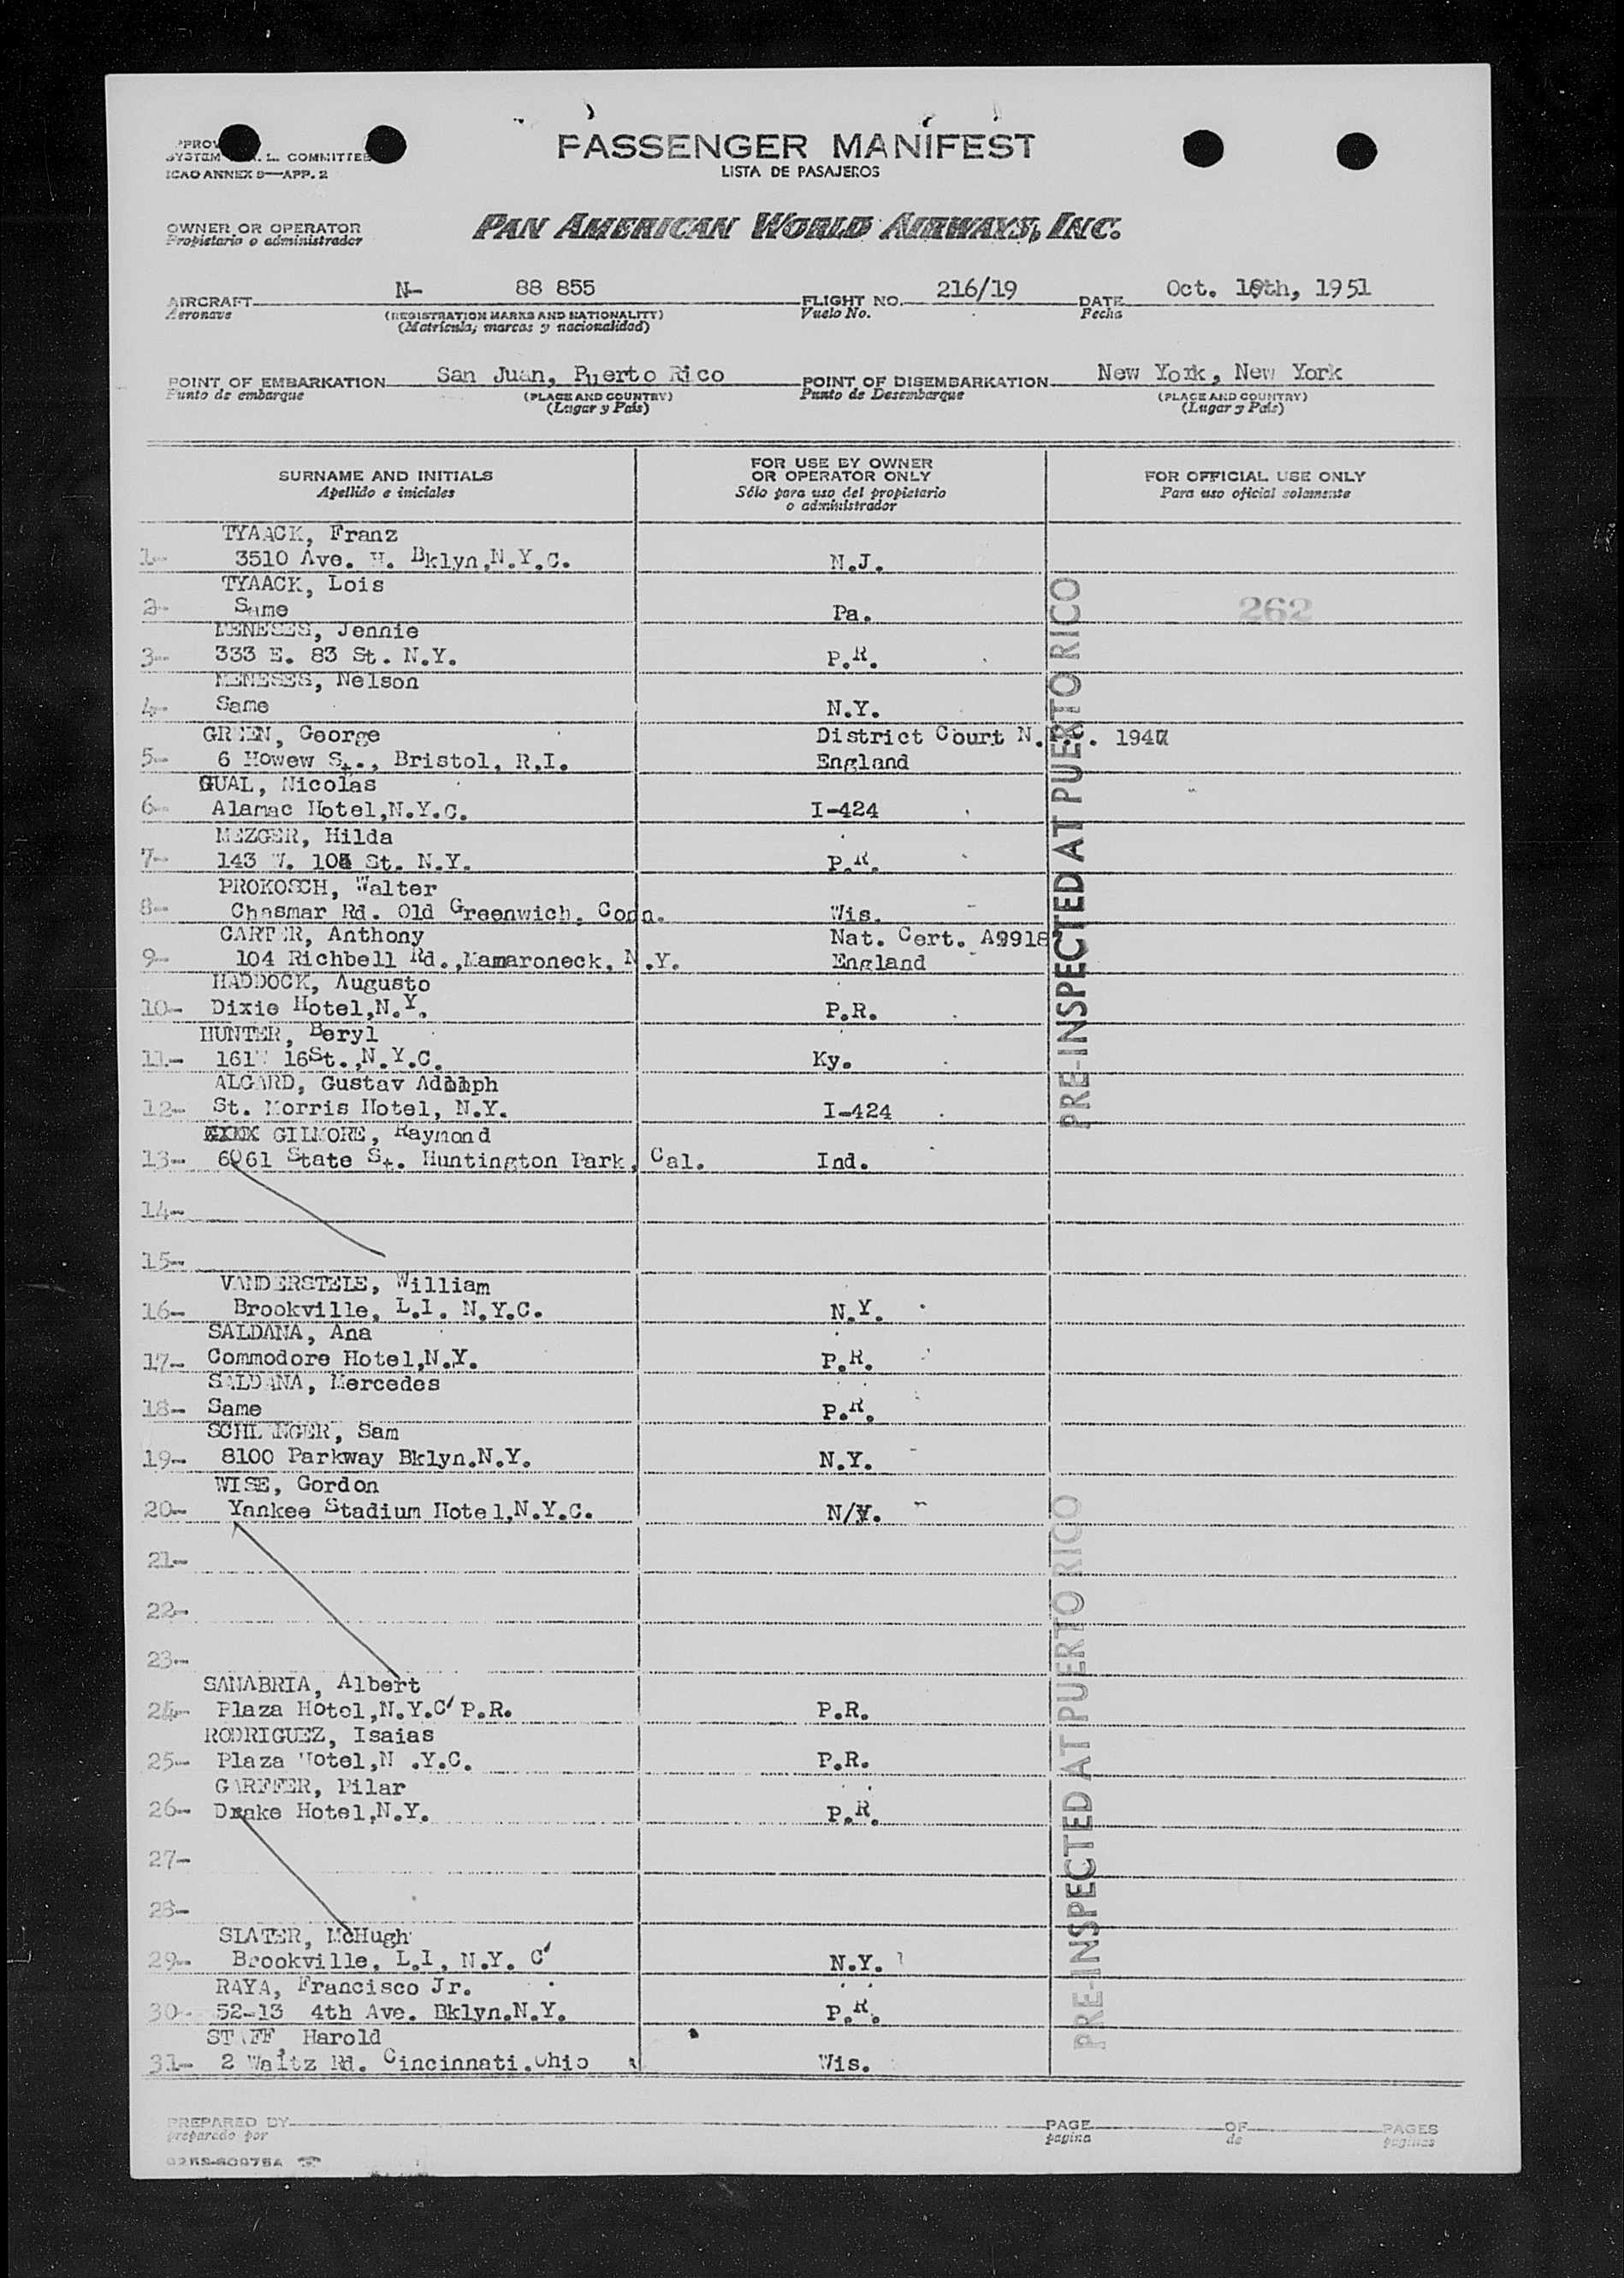 PASSENGER MANIFEST
LISTA DE PASAJEROS
SYSTEM COMMITTEE
ICAO ANNEX 9—APP. 2
OWNER OR OPERATOR
Propietario o administrador
PAN AMERICAN WORLD AIRWAYS, INC.
AIRCRAFT N- 88 855 FLIGHT NO. 216/19 DATE Oct. 19th, 1951
Aeronave (REGISTRATION MARKS AND NATIONALITY) Vuelo No. Fecha
(Matrícula; marcas y nacionalidad)
POINT OF EMBARKATION San Juan, Puerto Rico POINT OF DISEMBARKATION New York, New York
Punto de embarque (PLACE AND COUNTRY) Punto de Desembarque (PLACE AND COUNTRY)
(Lugar y País) (Lugar y País)
SURNAME AND INITIALS
Apellido e iniciales
FOR USE BY OWNER
OR OPERATOR ONLY
Sólo para uso del propietario
o administrador
FOR OFFICIAL USE ONLY
Para uso oficial solamente
TYAACK, Franz
1- 3510 Ave. H. Bklyn,N.Y.C. N.J.
TYAACK, Lois
2- Same Pa. 262
MENESES, Jennie
3- 333 E. 83 St. N.Y. P.R.
MENESES, Nelson
4- Same N.Y.
GREEN, George District Court N. 1947
5- 6 Howew St., Bristol, R.I. England
GUAL, Nicolas
6- Alamac Hotel,N.Y.C. I-424
MEZGER, Hilda
7- 143 W. St. N.Y. P.R.
PROKOSCH, Walter
8- Chasmar Rd. Old Greenwich, Conn. Wis.
CARTER, Anthony Nat. Cert. A9918
9- 104 Richbell Rd.,Mamaroneck, N.Y. England
HADDOCK, Augusto
10- Dixie Hotel,N.Y. P.R.
HUNTER, Beryl
11- 161W 16St.,N.Y.C. Ky.
ALGARD, Gustav Adolph
12- St. Morris Hotel, N.Y. I-424
GILMORE, Raymond
13- 6061 State St. Huntington Park, Cal. Ind.
14-
15-
VANDERSTELE, William
16- Brookville, L.I. N.Y.C. N.Y.
SALDANA, Ana
17- Commodore Hotel,N.Y. P.R.
SALDANA, Mercedes
18- Same P.R.
SCHLANGER, Sam
19- 8100 Parkway Bklyn.N.Y. N.Y.
WISE, Gordon
20- Yankee Stadium Hotel,N.Y.C. N/Y.
21-
22-
23-
SANABRIA, Albert
24- Plaza Hotel,N.Y.C' P.R. P.R.
RODRIGUEZ, Isaias
25- Plaza Hotel,N .Y.C. P.R.
GARFFER, Pilar
26- Drake Hotel,N.Y. P.R.
27-
28-
SLATER, McHugh
29- Brookville, L.I, N.Y. C' N.Y.
RAYA, Francisco Jr.
30- 52-13 4th Ave. Bklyn.N.Y. P.R.
STAFF, Harold
31- 2 Waltz Rd. Cincinnati.Ohio Wis.
PRE-INSPECTED AT PUERTO RICO
PRE-INSPECTED AT PUERTO RICO
PREPARED BY PAGE OF PAGES
preparado por pagina de paginas